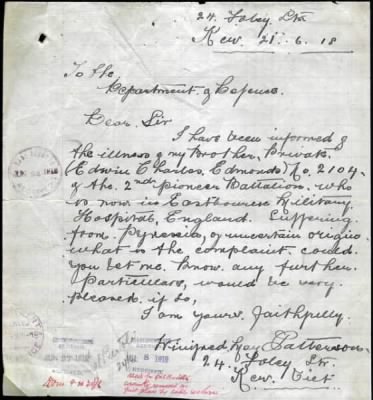 24. Foley Str
Kew. 21. 6. 18
To the
Department of Defence.
Dear Sir
I have been informed of
the illness of my Brother, Private
(Edwin Charles, Edmonds) No. 2104.
of the 2nd Pioneer Battalion. who
is now in Eastbourne Military
Hospital, England. Suffering
from Pyrexia, of uncertain origin
what is the complaint. could
you let me. know any further
particulars, would be very
pleased if so,
I am yours faithfully.
Patterson
24. Foley Str.
Kew. Vict
8 1918